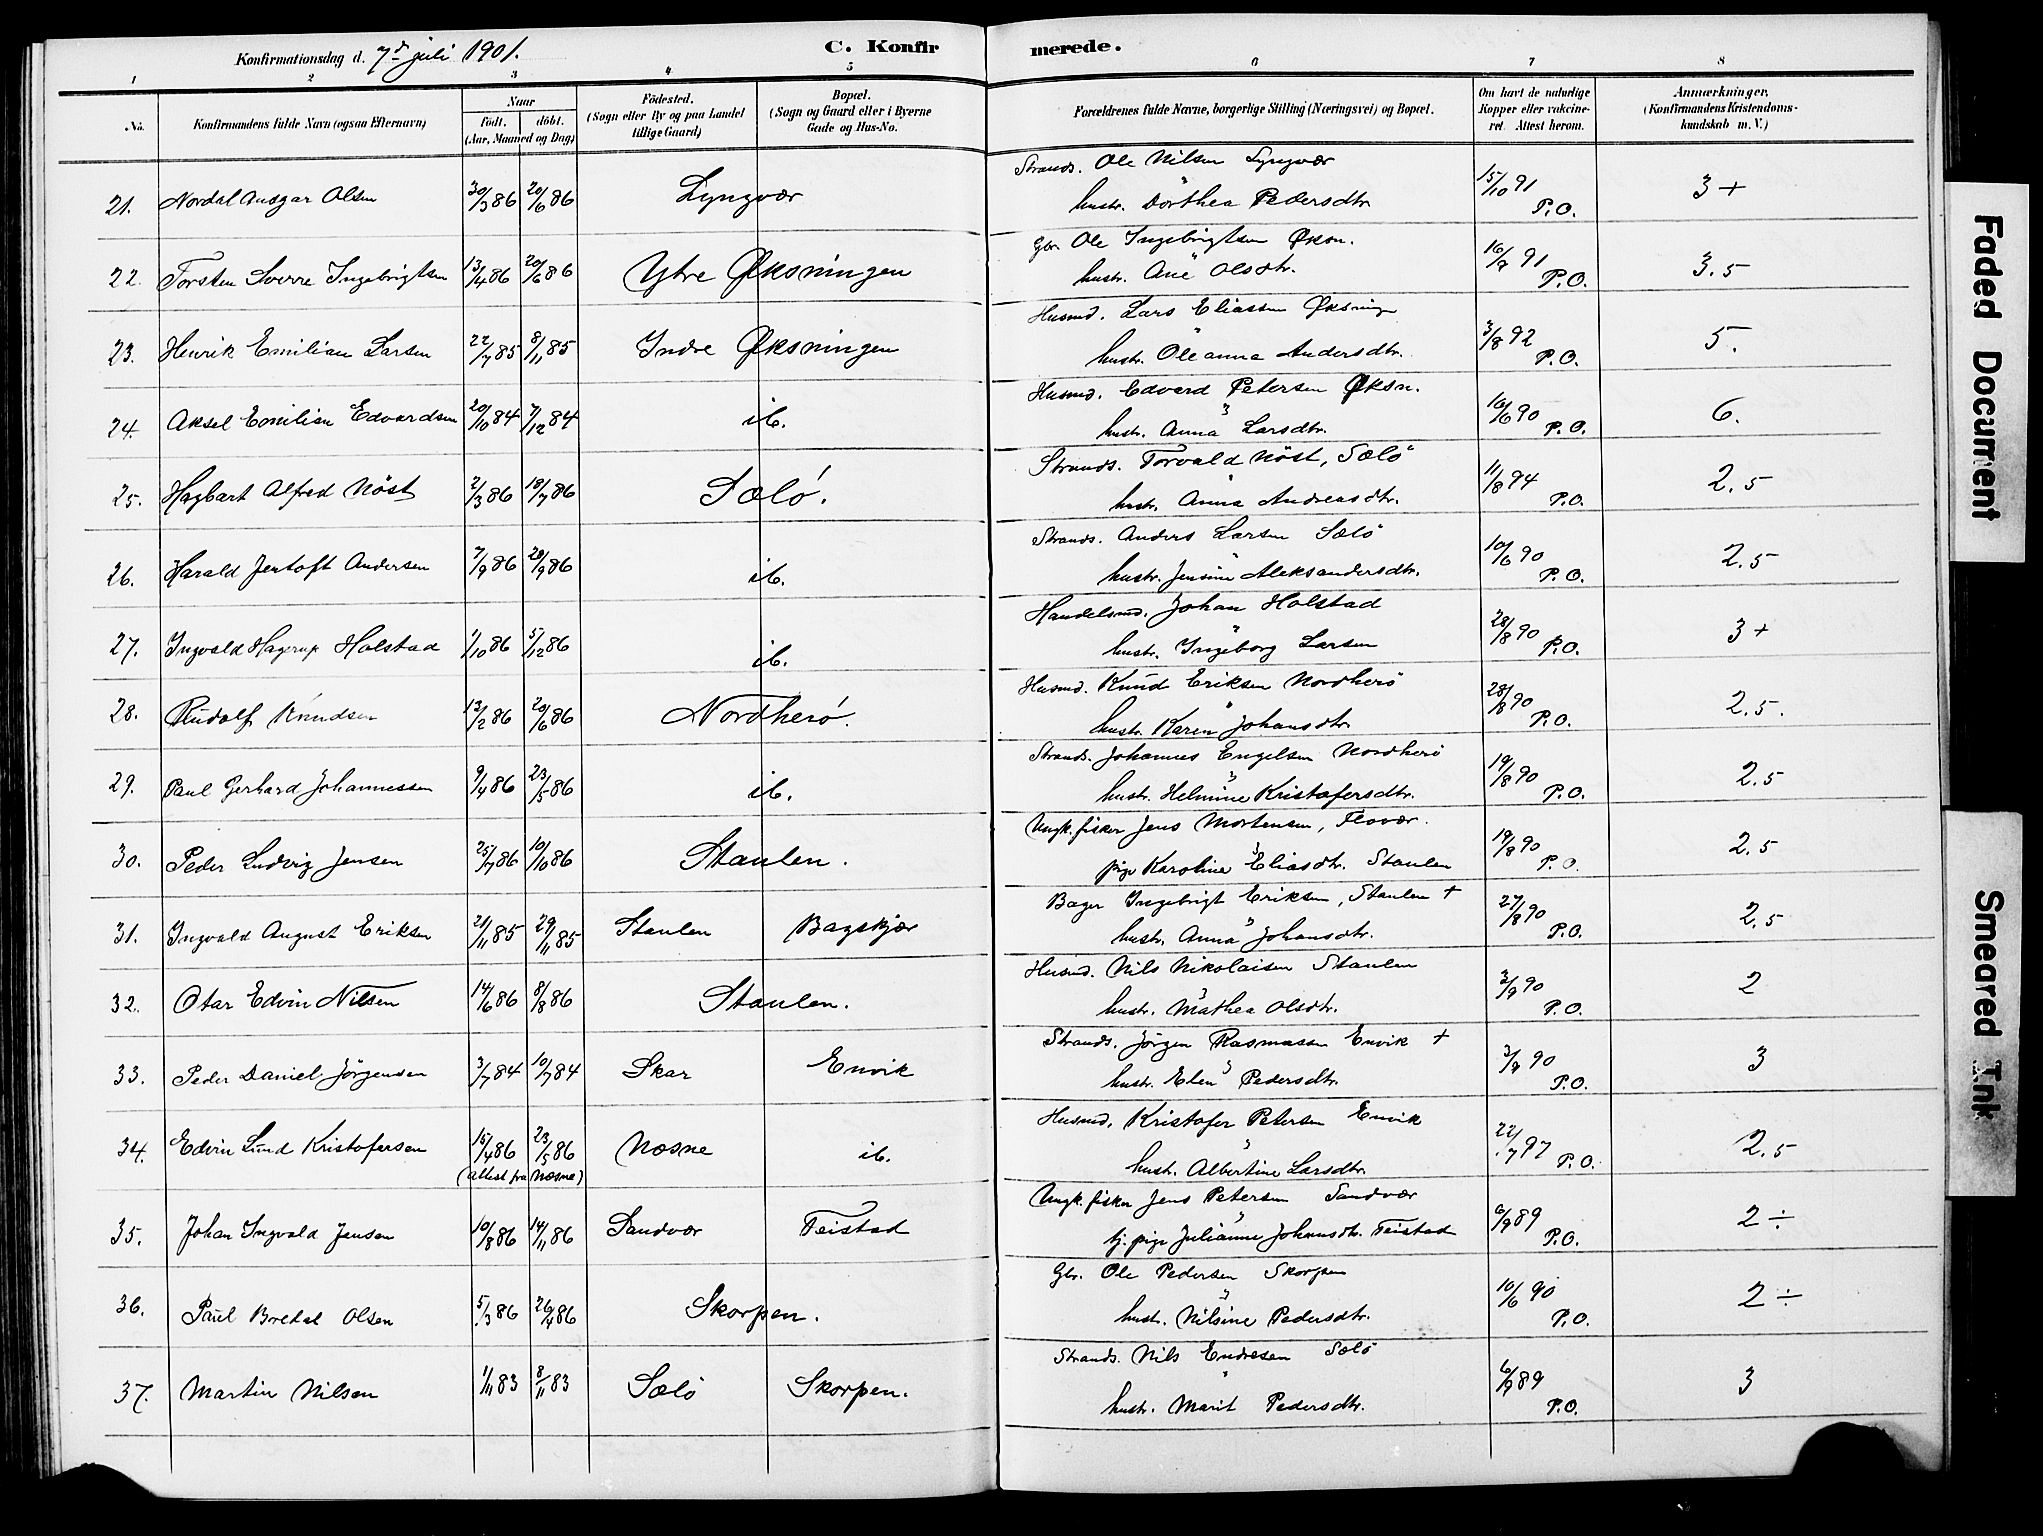 Konfirmationsdag d. 7de juli 1901. C. Konfirmerede.
1 2 3 4 5 6 7 8
No. Konfirmandens fulde Navn (ogsaa Efternavn) Naar født. døbt. (Aar, Maaned og Dag) Fødested. (Sogn eller By og paa Landet tillige Gaard) Bopæl. (Sogn og Gaard eller i Byerne Gade og Hus-No. Forældrenes fulde Navne, borgerlige Stilling (Næringsvei) og Bopæl. Om havt de naturlige Kopper eller vakcineret. Attest herom. Anmærkninger, (Konfirmandens Kristendomskundskab m. V.)
21. Nordal Ansgar Olsen 30/3 86 20/6 86 Lyngvær Strands. Ole Nilsen Lyngvær 15/10 91 3 +
hustr. Dorthea Pedersdtr. P.O.
22. Torsten Sverre Ingebrigtsen 13/4 86 20/6 86 Ytre Øksningen Gbr. Ole Ingebrigtsen Øksn. 16/7 91 3.5
hustr. Ane Olsdtr. P.O.
23. Henrik Emilian Larsen 22/7 85 8/11 85 Indre Øksningen Husmd. Lars Eliassen Øksning 3/8 92 5.
hustr. Oleanna Andersdtr. P.O.
24. Aksel Emilian Edvardsen 20/10 84 7/12 84 ib. Husmd. Edvard Petersen Øksn. 10/6 90 6.
hustr. Anna Larsdtr. P.O.
25. Hagbart Alfred Nöst 2/3 86 18/7 86 Sælö. Strands. Torvald Nöst, Sælö 11/8 94 2.5
hustr. Anna Andreasdtr. P.O.
26. Harald Jentoft Andersen 7/9 86 28/9 86 ib. Strands. Anders Larsen Sælö 10/6 90 2.5
hustr. Jensine Aleksandersdtr. P.O.
27. Ingvald Hagerup Holstad 1/10 86 5/12 86 ib. Handelsmd. Johan Holstad 28/8 90 3 +
hustr. Ingeborg Larsen P.O.
28. Rudolf Knudsen 13/2 86 20/6 86 Nordherö. Husmd. Knud Eriksen Nordherö 28/8 90 2.5.
hustr. Karen Johansdtr P.O.
29. Paul Gerhard Johannessen 9/4 86 23/5 86 ib. Strands. Johannes Engelsen Nordherö 19/8 90 2.5
hustr. Helmine Kristofersdtr. P.O.
30. Peder Ludvig Jensen 25/7 86 10/10 86 Staulen. Ungk. fisker Jens Mortensen, Flovær. 19/8 90 2.5
pige Karoline Eliasdtr. Staulen P.O.
31. Ingvald August Eriksen 21/11 85 29/11 85 Staulen Bagskjær Bager Ingebrigt Eriksen, Staulen + 27/8 90 2.5
hustr. Anna Johansdtr. P.O.
32. Otar Edvin Nilsen 14/6 86 8/8 86 Staulen. Husmd. Nils Nikolaisen Staulen 3/9 90 2
hustr. Mathea Olsdtr. P.O.
33. Peder Daniel Jörgensen 3/7 84 10/7 84 Skar Envik Strands. Jörgen Rasmussen Envik + 3/9 90 3
hustr. Elen Pedersdtr. P.O.
34. Edvin Lund Kristofersen 15/4 86 23/5 86 Næsne ib. Husmd. Kristofer Petersen Envik 22/7 97 2.5
(attest fra Næsne) hustr. Albertine Larsdtr. P.O.
35. Johan Ingvald Jensen 10/8 86 14/11 86 Sandvær Teistad Ungk. fisker Jens Petersen Sandvær 6/9 89 2 ÷
tj. pige Julianne Johansdtr. Teistad P.O.
36. Paul Bredal Olsen 5/3 86 26/4 86 Skorpen. Gbr. Ole Pedersen Skorpen 10/6 90 2 ÷
hustr. Nilsine Pedersdtr. P.O.
37. Martin Nilsen 1/11 83 8/11 83 Sælö Skorpen. Strands. Nils Endresen Sælö 6/9 89 3
hustr. Marit Pedersdtr. P.O.
Faded Document
Smeared Ink